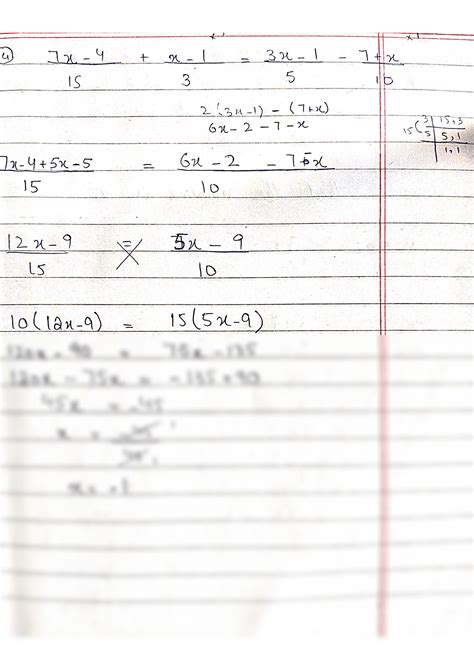 4) 7x-4/15 + x-1/3 = 3x-1/5 - 7+x/10
2(3x-1) - (7+x)
6x-2-7-x
15 3 15,3
5 5,1
1,1
7x-4+5x-5/15 = 6x-2 -7-x/10
12x-9/15 = 5x-9/10
10(12x-9) = 15(5x-9)
120x-90 = 75x-135
120x-75x = -135+90
45x = -45